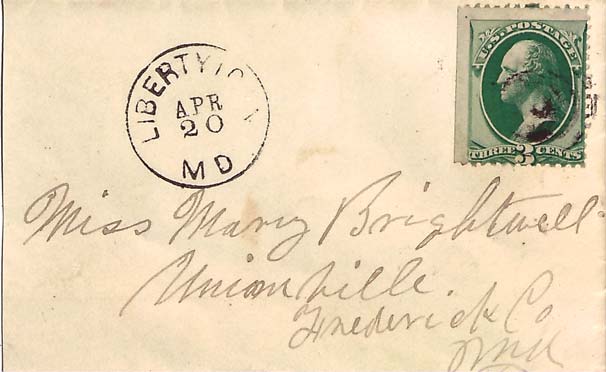 LIBERTYTO
APR
20
MD
U.S. POSTAGE
THREE 3 CENTS
Miss Mary Brightwell
Unionville.
Frederick Co
Md